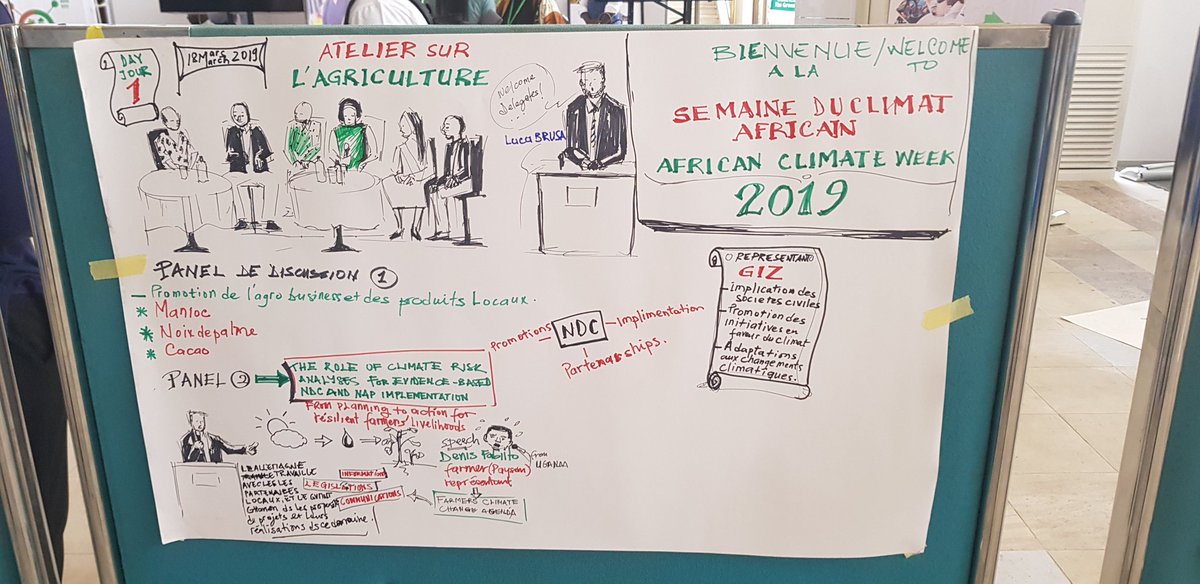 DAY
JOUR
1
18 Mars
March 2019
ATELIER SUR
L'AGRICULTURE
Welcome
Delegates!
...
Luca BRUSA
BIENVENUE/WELCOME
A LA TO
SEMAINE DU CLIMAT
AFRICAIN
AFRICAN CLIMATE WEEK
2019
PANEL DE DISCUSSION 1
— Promotion de l'agro business et des produits Locaux.
* Manioc
* Noix de palme
* Cacao
PANEL 2
THE ROLE OF CLIMATE RISK
ANALYSES FOR EVIDENCE-BASED
NDC AND NAP IMPLEMENTATION
From planning to action for
résilient farmers' livelihoods
Promotions — NDC — Implimentation
Partenarships.
REPRESENTANT
GIZ
— implication des
Societes civiles
— Promotion des
initiatives en
faveur du climat
— Adaptations
aux changements
climatiques.
speech
Denis Pablito
from
UGANDA
farmer (Paysan)
représentant
FARMERS CLIMATE
CHANGE AGENDA
L'ALLEMAGNE
TRAVAILLE
AVEC LES
PARTENAIRES
LOCAUX, ET LE
de projets et leurs
réalisations ds ce domaine.
INFORMATION
LEGISLATIONS
COMMUNICATIONS